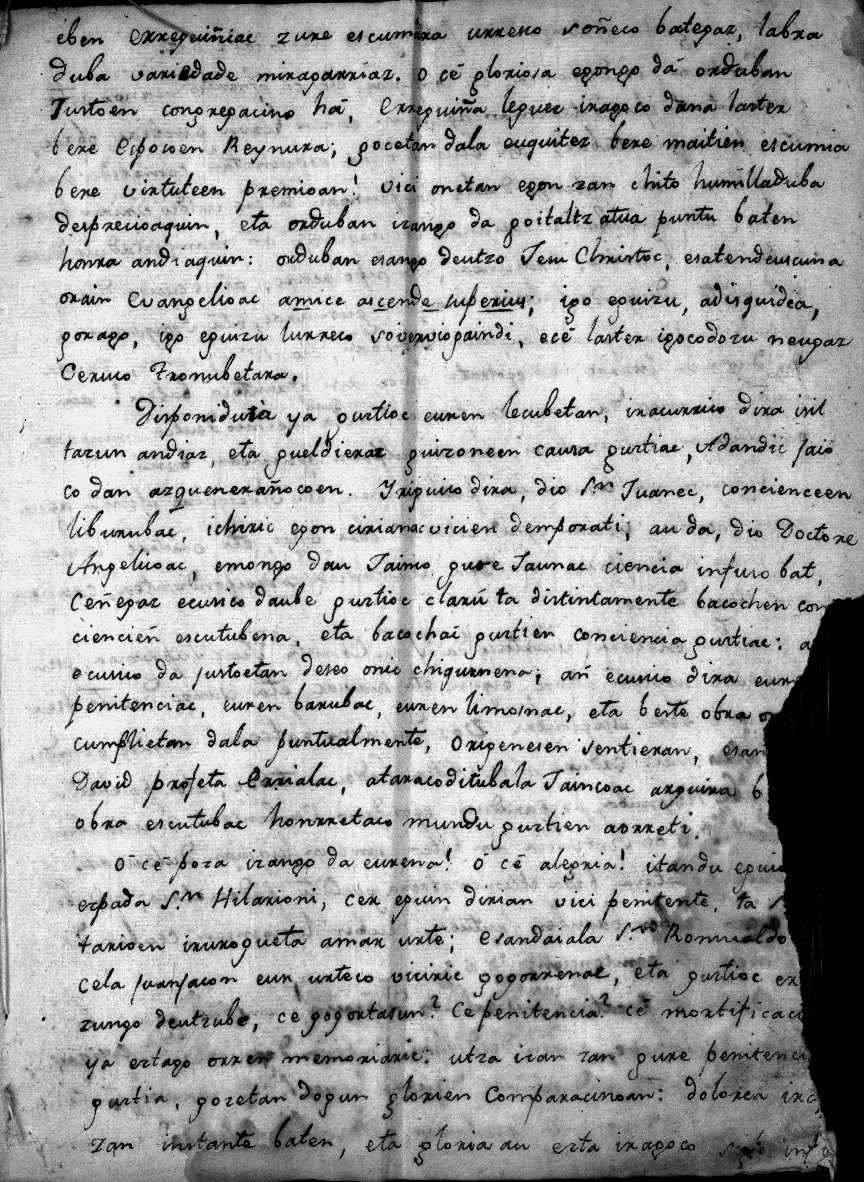 eben erreguiñiac zure escumara urreico soñeco bategaz, labra
duba variedade miragarriaz. O cē gloriosa egongo dā orduban
Justoen congregacino hā, erreguiña leguez iragoco dana laster
bere Esposoen Reynura; gocetan dala euquitez bere maitien escumia
bere virtuteen premioan! vici onetan egon zan chito humilladuba
desprecioaquin, eta orduban izango da goitaltzatua puntu baten
honra andiaquin: orduban esango deutzo Jesu Christoc, esatendeuscuna
orain Evangelioac amice ascende superius, igo eguizu, adisquidea,
gorago, igo eguizu lurreco soverviogaindi, ecē laster igocodozu neugaz
Ceruco Tronubetara.
Disponiduta ya guztioc euren lecubetan, iracurrico dira isil
tazun andiaz, eta gueldieraz guizoneen causa guztiac, Adandic jaio
co dan azquenerañocoen. Yriguico dira, dio Sn Juanec, concienceen
liburubac, ichiric egon cirianac vicien demporati; au da, dio Doctore
Angelicoac, emongo dau Jaunco gure Jaunac ciencia infuso bat,
Ceñegaz ecusico daube guztioc clarū ta distintamente bacochen con
ciencieñ escutubena, eta bacochaī guztien conciencia guztiac:
ecusico da justoetan deseo onic chiquinena; añ ecusico dira eure
penitenciac, euren barubac, euren limosnac, eta beste obra
cumplietan dala puntualmente, Origenesen sentieran, esan
David profeta Errialac, ataracoditubala Jaincoac arguira b
obra escutubac honrretaco mundu guztien aurreti.
O cē poza izango da eurena! O cē alegria! itandu egui
ezpada Sn Hilarioni, cer eguin dirian vici penitente, ta
tarioen irurogueta amar urte; esandaiala Sno Romualdo
cela juanjacon eun urteco viciric gogorrenaz, eta guztioc er
zungo deutzube, ce gogortasun? Ce penitencia? cē mortificaci
ya eztago orren memoriaric: utza izan zan gure penitenci
guztia, gozetan dogun glorien Comparacinoan: dolorea iza
zan instante baten, eta gloria au ezta iragoco